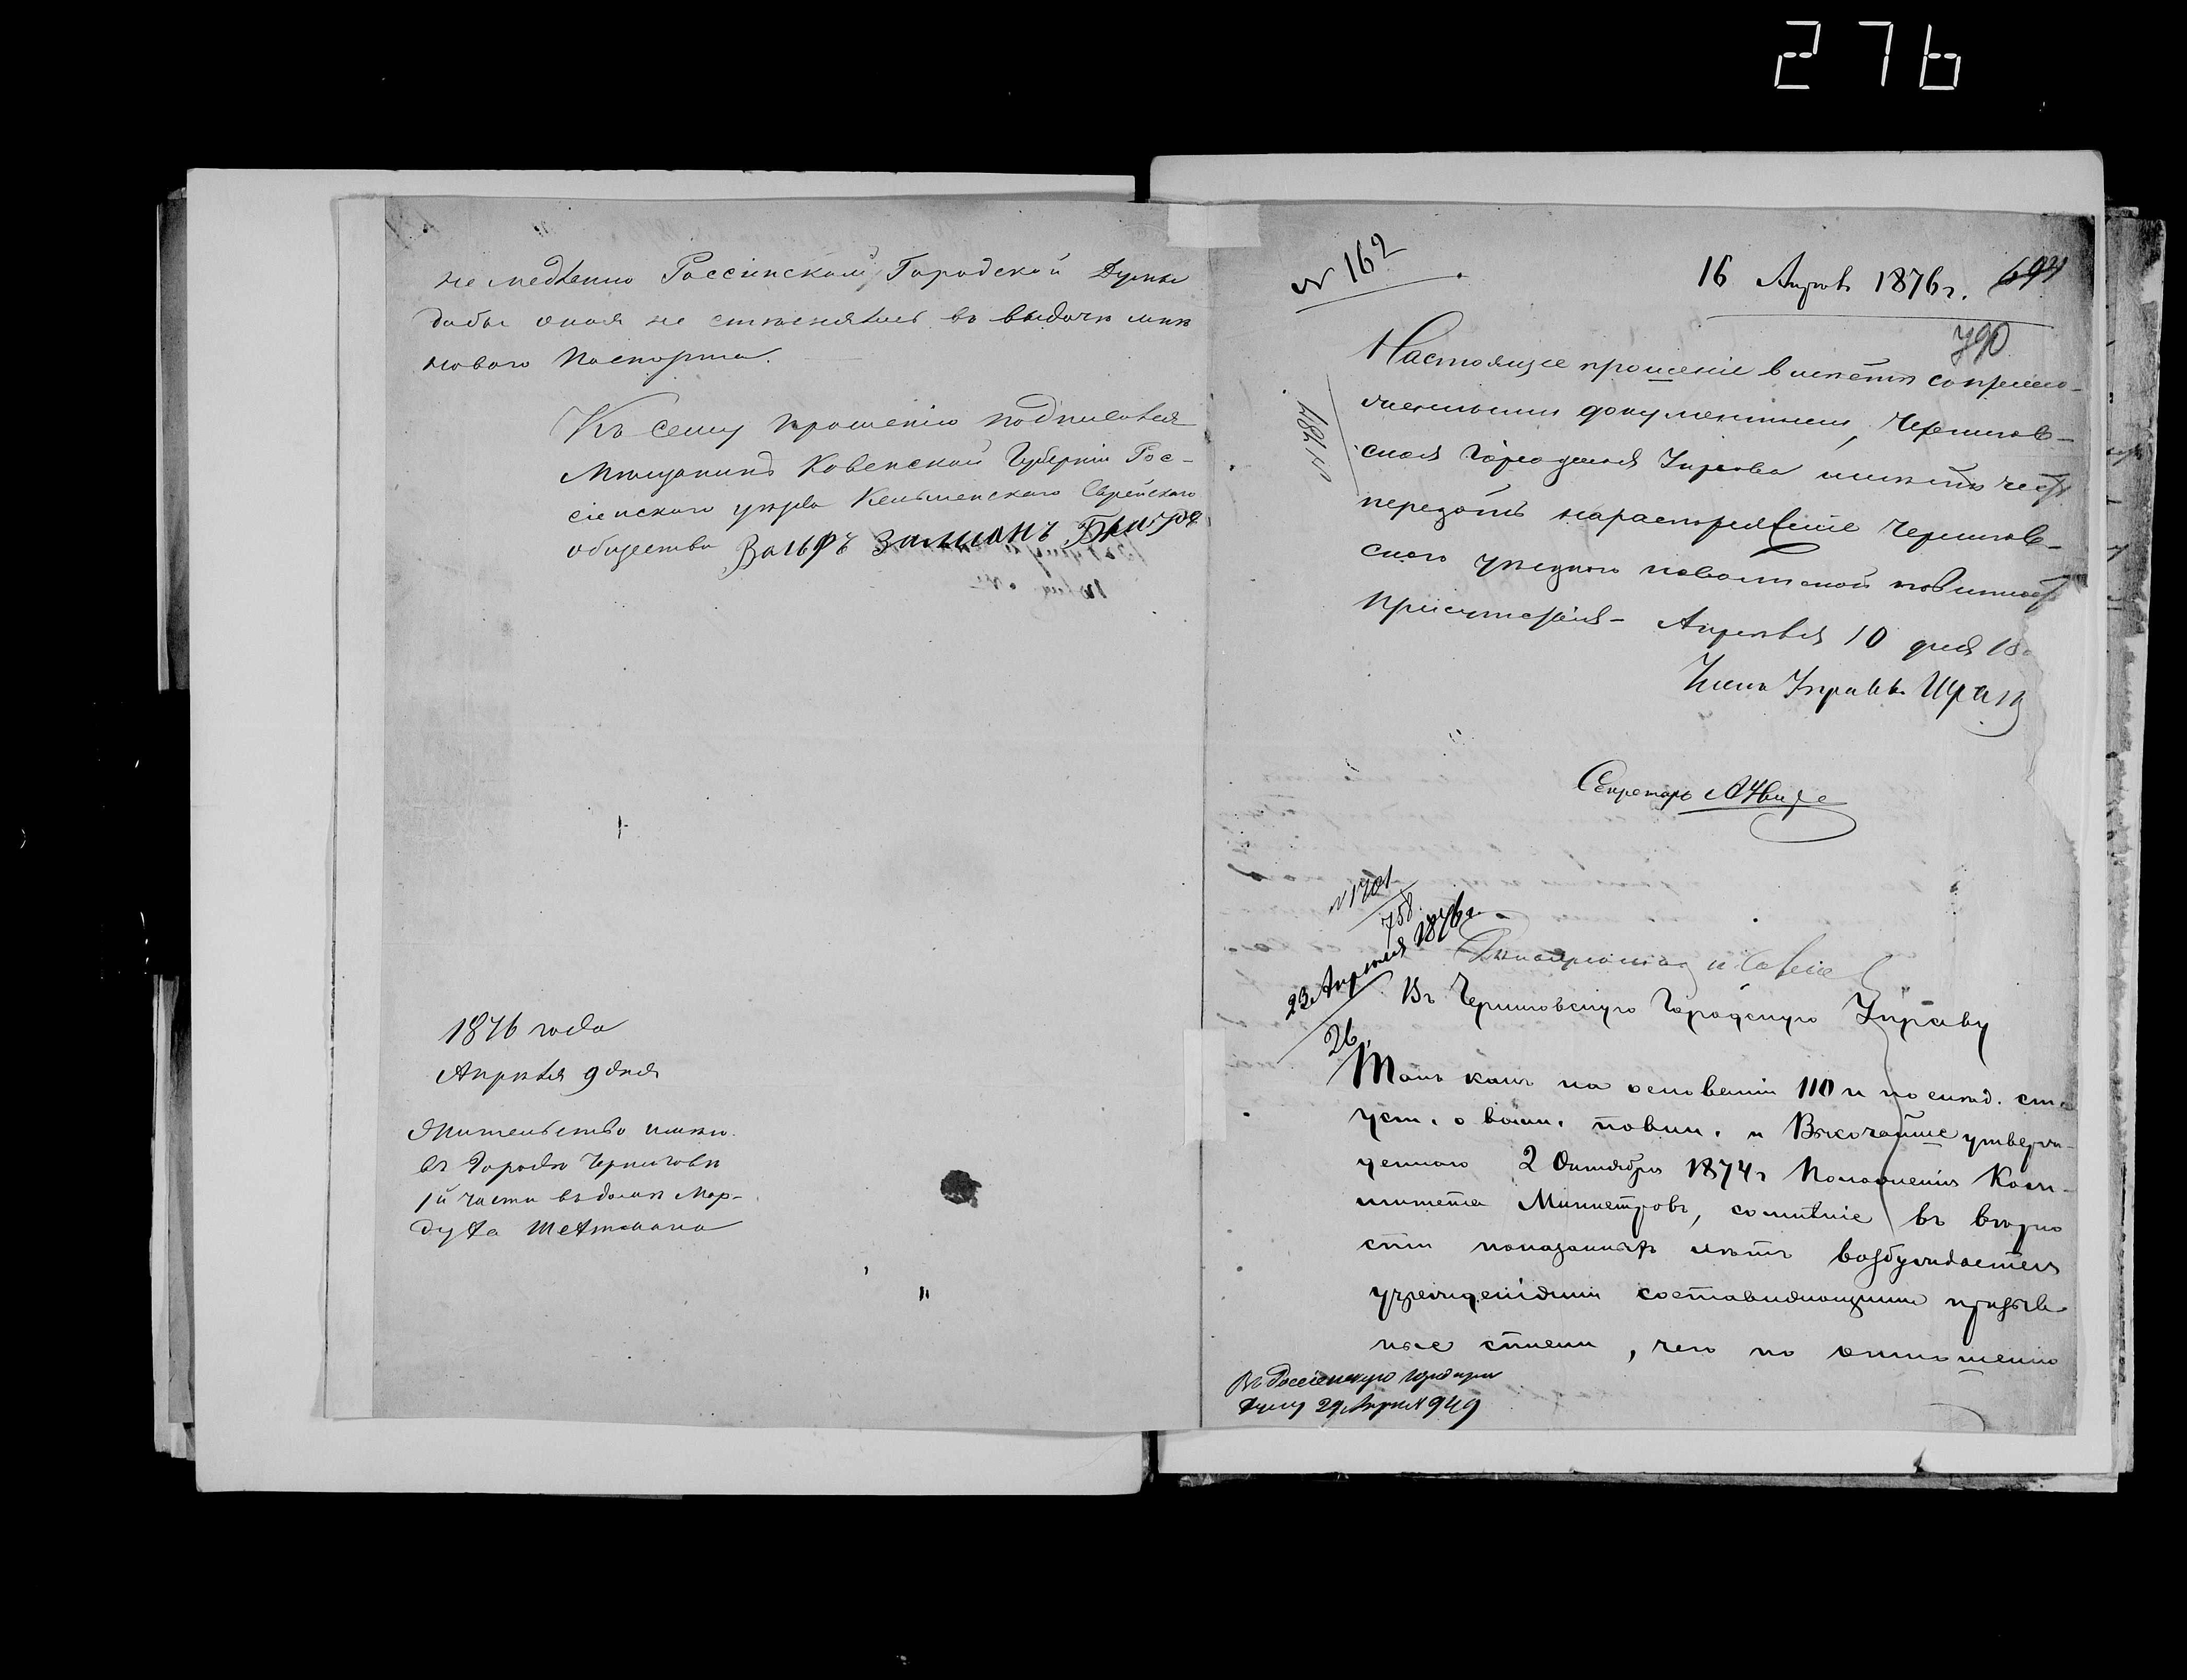 276
не медленно Россіенской Городской Думы
дабы оная не стеснялась въ выдачи мнѣ
новаго Паспорта.
Къ сему прошенію подписался
Мещанинъ Ковенской Губерніи Рос-
сіенскаго уѣзда Кельменскаго Еврейскаго
общества Вольфъ Залманъ
1876 года
Апрѣля 9 дня
Жительство имѣю
въ Городѣ Черниговѣ
1й части въ домѣ Мор-
духа
№ 162
16 Апрѣл 1876 г.
790
Настоящее прошеніе вмѣстѣ съ прило-
женными документами, Чернигов-
ская Городская Управа имѣетъ честь
передать на распоряженіе Чернигов-
скаго уѣзднаго по воинской повинност
Присутствія - Апрѣля 10 дня 18
Членъ Управы
Секретарь
№ 1701
758
23 Апрѣля 1876 г.
26
Въ Черниговскую Городскую Управу
Такъ какъ на основаніи 110 и послѣд. ст.
уст. о воин. повин. и Высочайше утверж-
деннаго 2 Октября 1874 г Положенія Коми-
митета Министровъ, сомнѣніе въ вѣрно
сти показанныхъ лѣтъ возбуждается
учрежденіями составляющими призыв-
ные списки, чего по отношенію
Въ Россіенскую городскую
Думу 29 Апрѣля 949